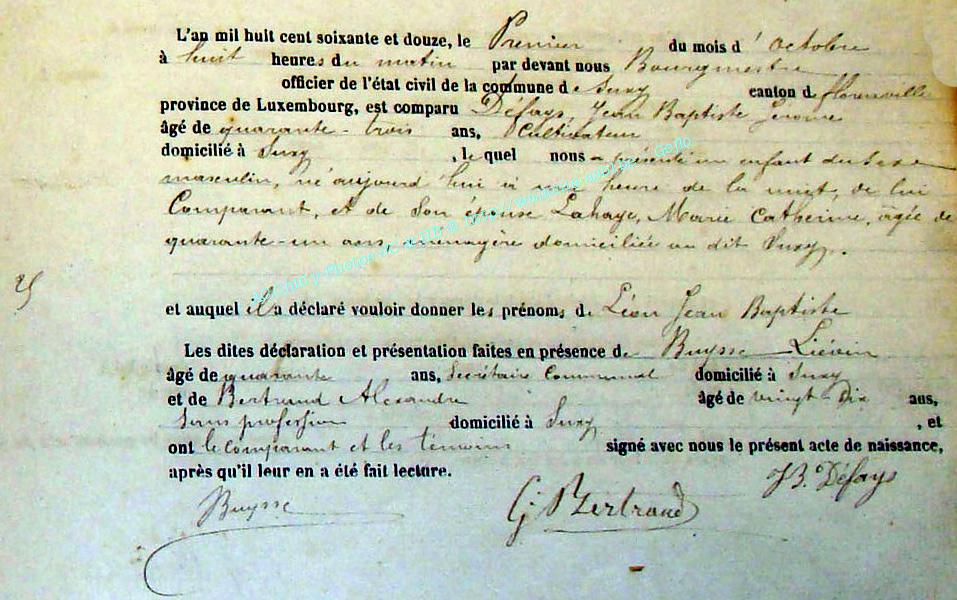 L'an mil huit cent soixante et douze, le Premier du mois d'octobre
à huit heures du matin par devant nous Bourgmestre
officier de l'état civil de la commune de Suxy canton de florenville
province de Luxembourg, est comparu Défays, Jean Baptiste Jerome
âgé de quarante-trois ans, Cultivateur
domicilié à Suxy, lequel nous a présenté un enfant du sexe
masculin, né aujourd'hui à une heure de la nuit, de lui
Comparant, et de son épouse Lahaye, Marie Catherine, âgée de
quarante-un ans, ménagère domiciliée au dit Suxy.
25
et auquel il a déclaré vouloir donner les prénoms de Léon Jean Baptiste
Les dites déclaration et présentation faites en présence de Buysse Liévin
âgé de quarante ans, Secrétaire Communal domicilié à Suxy
et de Bertrand Alexandre âgé de vingt-dix ans,
sans profession domicilié à Suxy, et
ont le comparant et les témoins signé avec nous le présent acte de naissance,
après qu'il leur en a été fait lecture.
JB. Défays
Buysse G. Bertrand